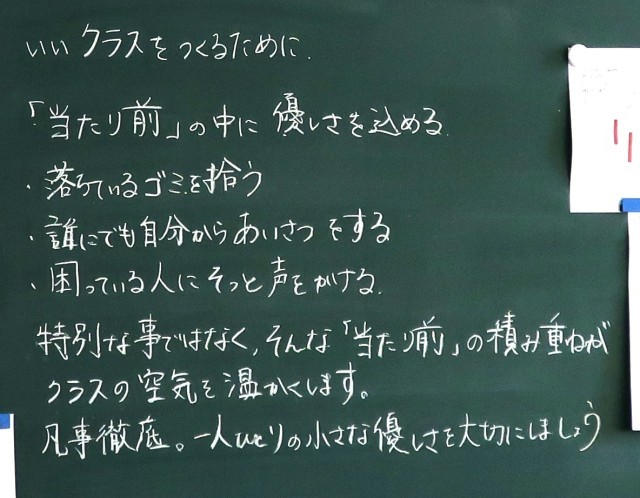 いいクラスをつくるために.
「当たり前」の中に優しさを込める
・落ちているゴミを拾う
・誰にでも自分からあいさつをする
・困っている人にそっと声をかける.
特別な事ではなく、そんな「当たり前」の積み重ねが
クラスの空気を温かくします。
凡事徹底。一人ひとりの小さな優しさを大切にしましょう